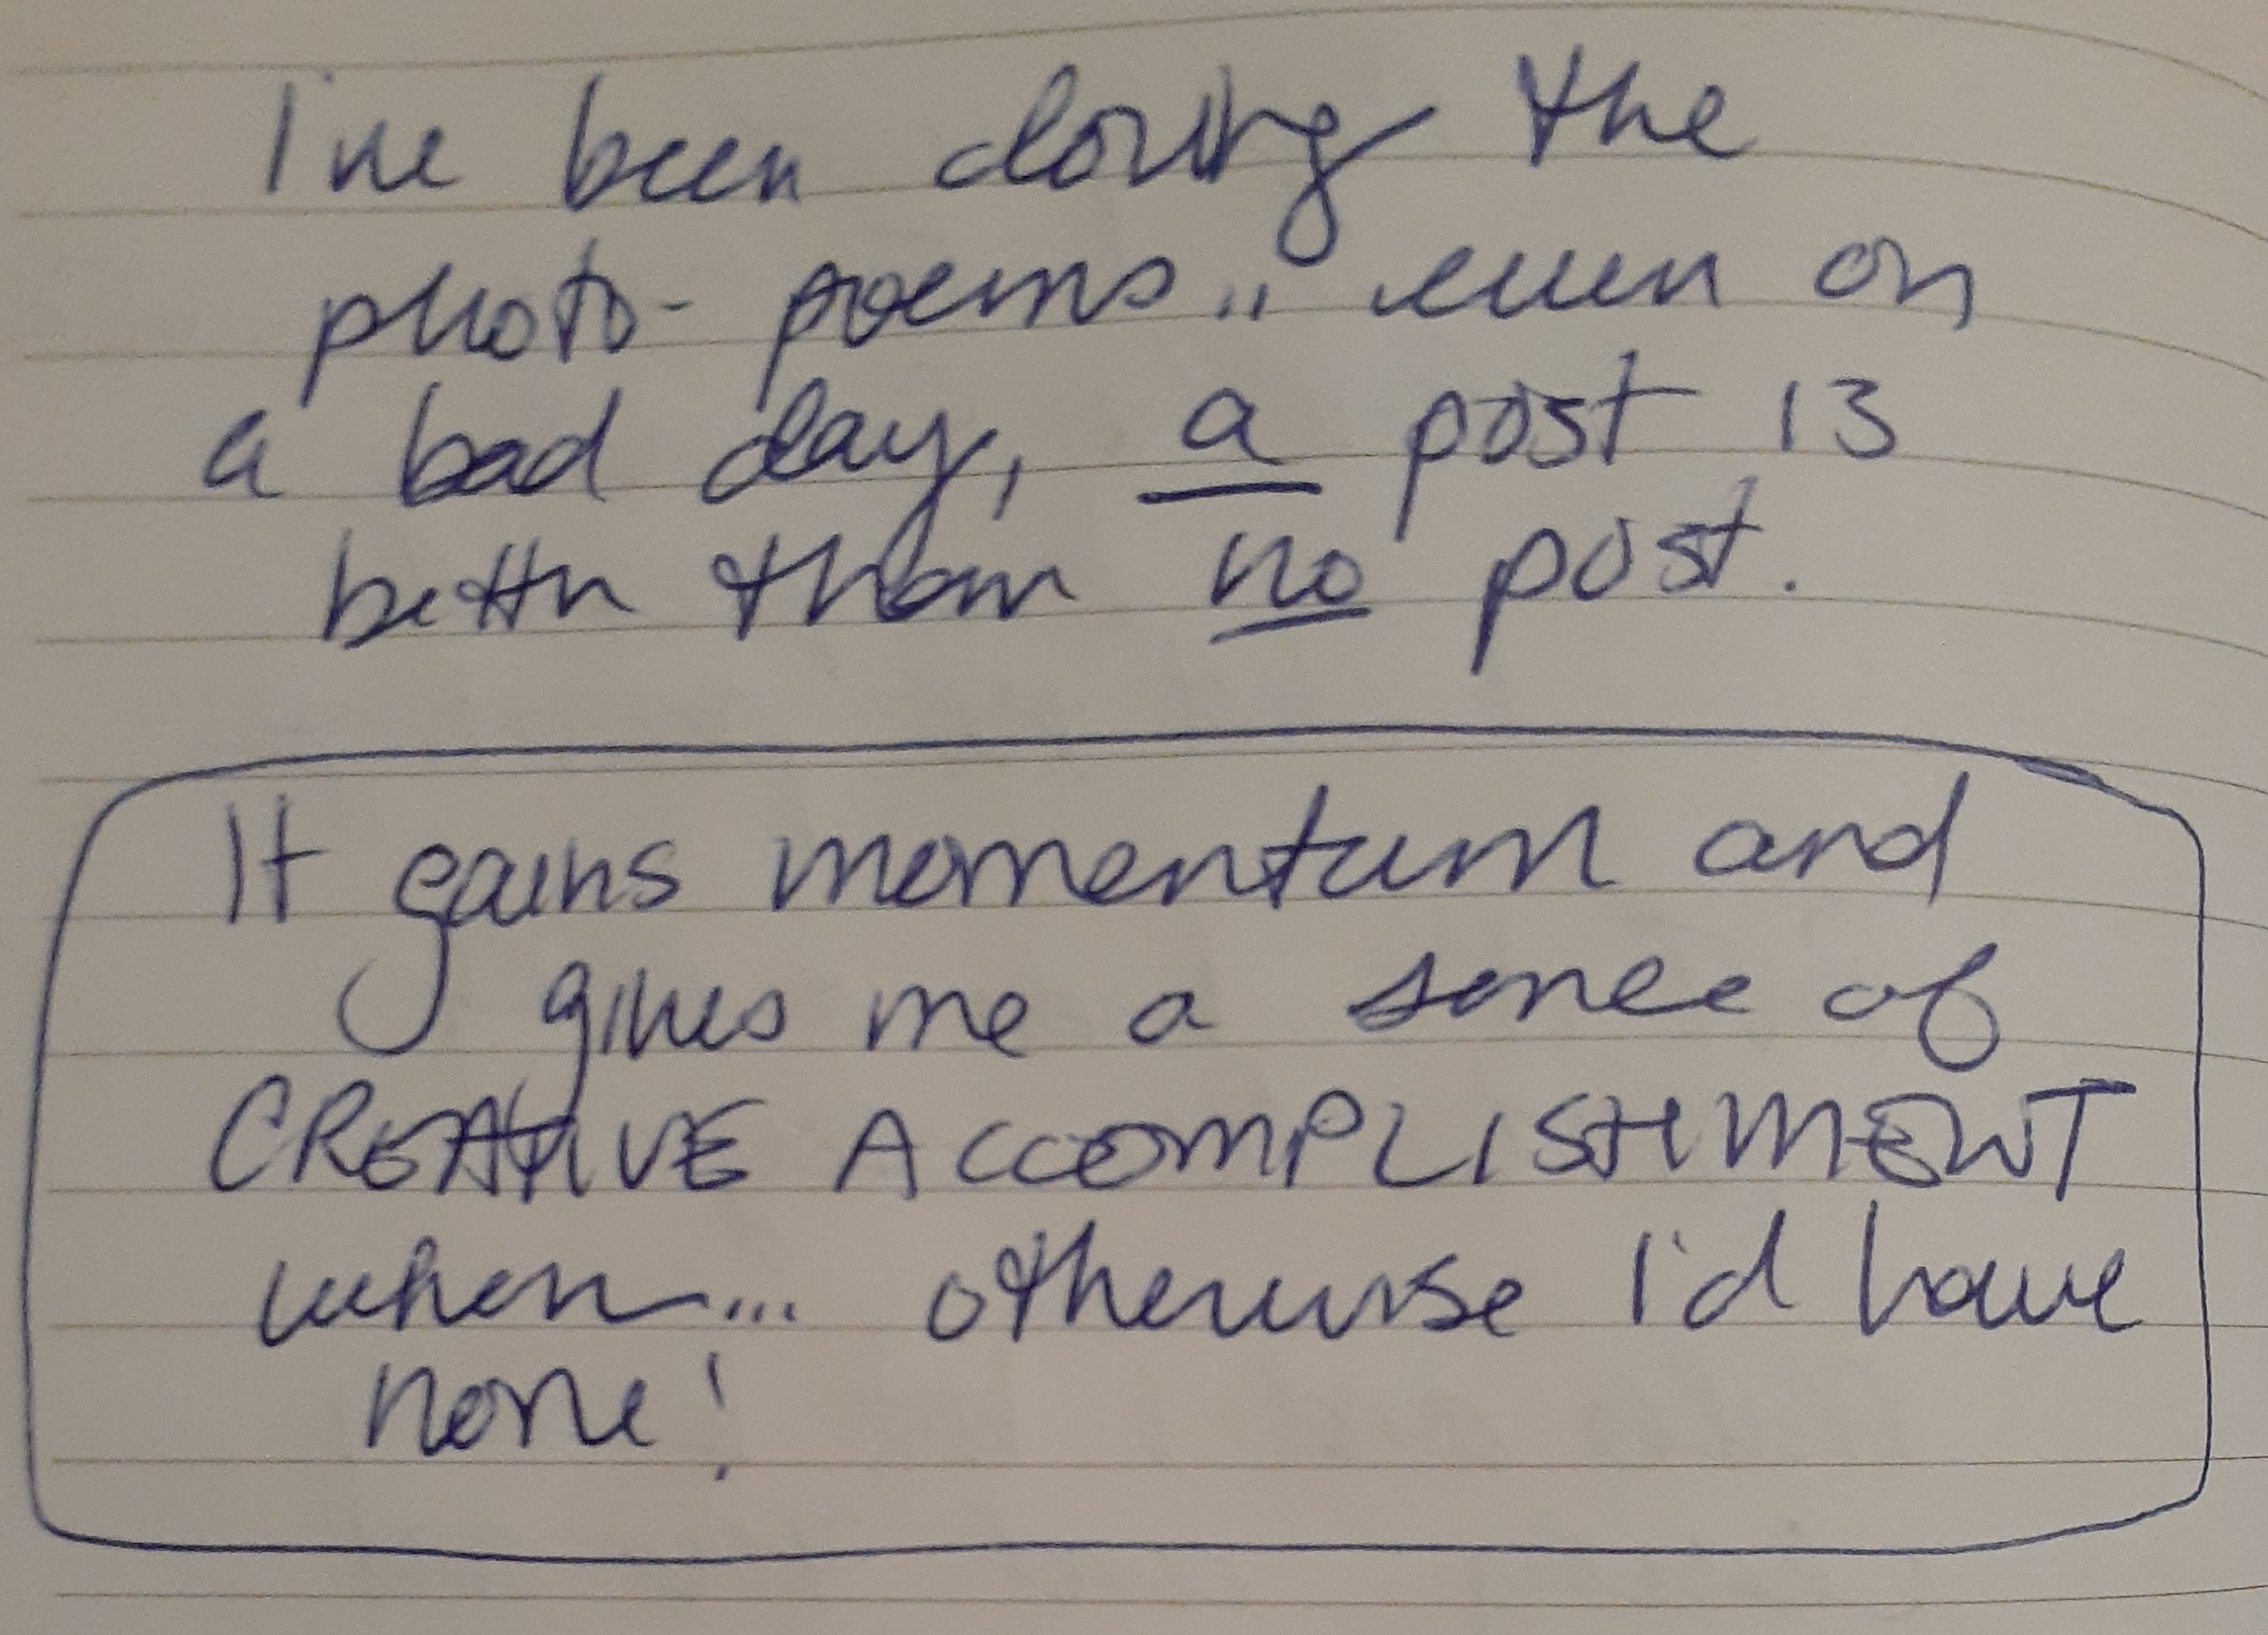 I've been doing the
photo-poems.. even on
a bad day, a post is
better than no post.
It gains momentum and
gives me a sense of
CREATIVE ACCOMPLISHMENT
when... otherwise I'd have
none!